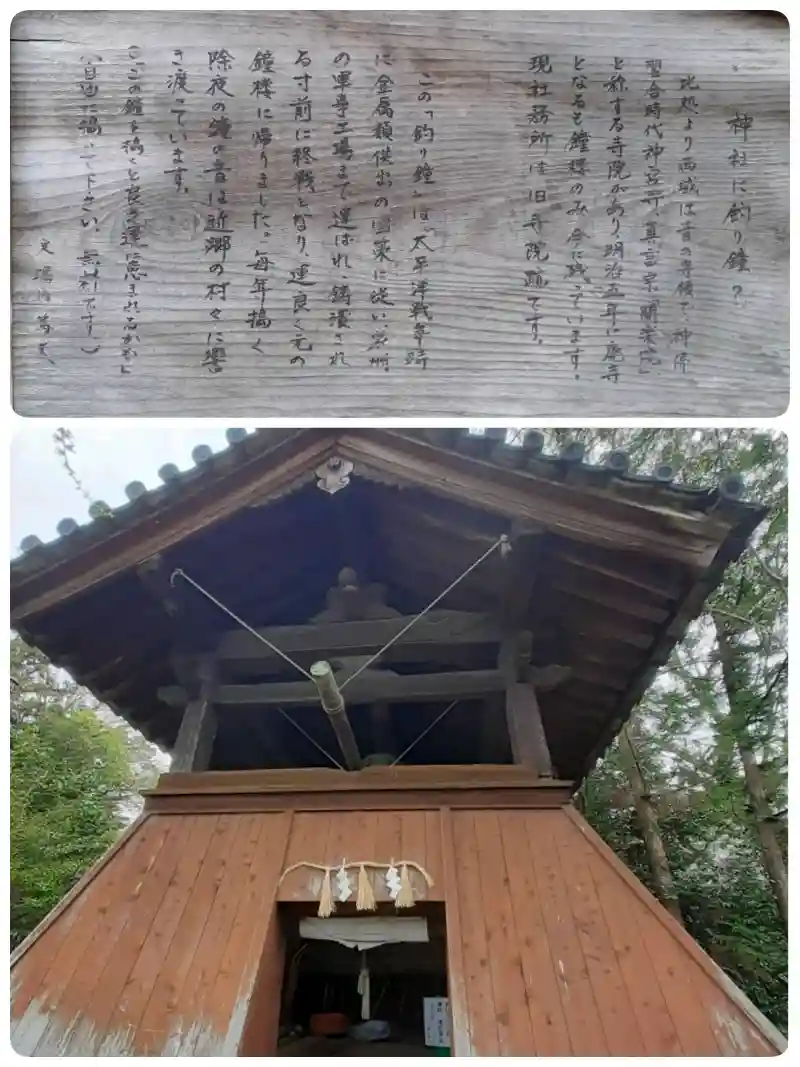 神社に釣り鐘?
此処より西域は昔の景儀で、神佛
習合時代神宮所、真言宗「開楽院」
と称する寺院があり、明治五年に廃寺
となるも鐘楼のみ今に残っています。
現社務所は旧寺院跡です。
この「釣り鐘」は、太平洋戦争時
に金属類供出の国策に従い、
の軍事工場まで運ばれ、鋳潰され
る寸前に終戦となり、運良く元の
鐘楼に帰りました。毎年搗く
除夜の鐘の音は近郷の村々に響
き渡っています。
(「この鐘を搗くと良き運に恵まれるかも」
(自由に搗いて下さい、無料です。)
文